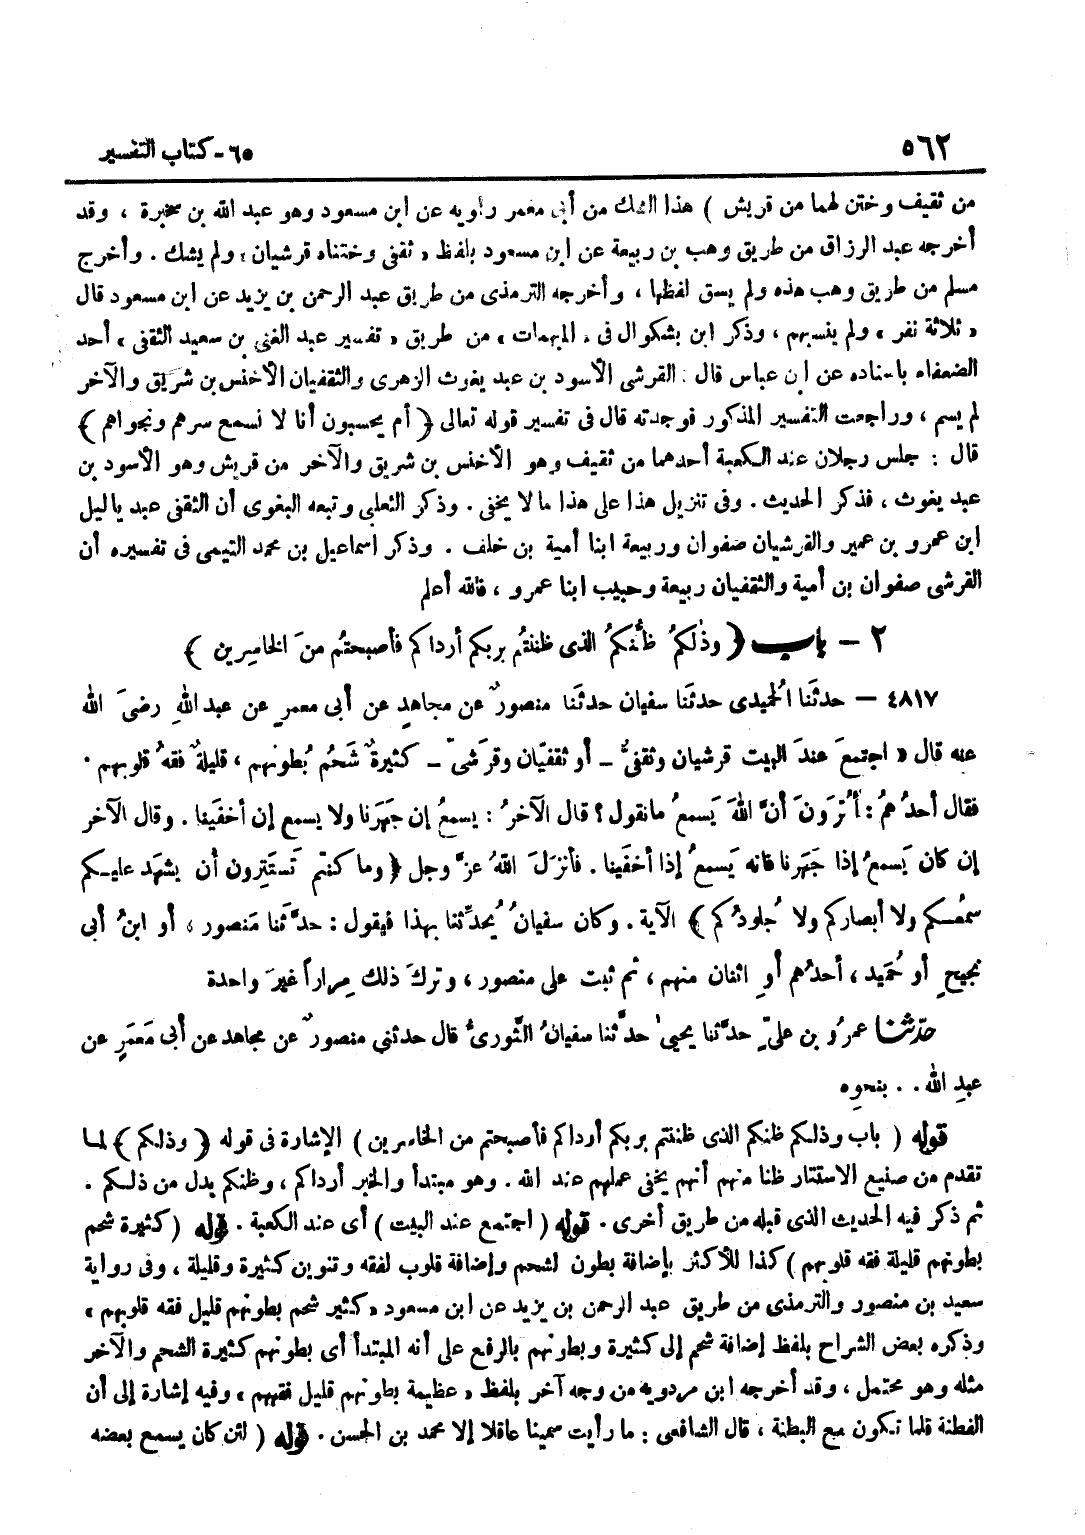 ٥٦٢
٦٥ - كتاب التفسير
من ثقيف وختن لهما من قريش ) هذا الشك من أبى معمر راويه عن ابن مسعود وهو عبد الله بن سخبرة ، وقد
أخرجه عبد الرزاق من طريق وهب بن ربيعة عن ابن مسعود بلفظ « ثقفى وختناه قرشيان » ولم يشك . وأخرج
مسلم من طريق وهب هذه ولم يسق لفظها ، وأخرجه الترمذى من طريق عبد الرحمن بن يزيد عن ابن مسعود قال
« ثلاثة نفر » ولم ينسبهم ، وذكر ابن بشكوال فى « المبهمات » من طريق « تفسير عبد الغنى بن سعيد الثقفى » أحد
الضعفاء باسناده عن ابن عباس قال : القرشى الأسود بن عبد يغوث الزهرى والثقفيان الأخنس بن شريق والآخر
لم يسم ، وراجعت التفسير المذكور فوجدته قال فى تفسير قوله تعالى ﴿ أم يحسبون أنا لا نسمع سرهم ونجواهم ﴾
قال : جلس رجلان عند الكعبة أحدهما من ثقيف وهو الأخنس بن شريق والآخر من قريش وهو الأسود بن
عبد يغوث ، فذكر الحديث . وفى تنزيل هذا على هذا ما لا يخفى . وذكر الثعلبى وتبعه البغوى أن الثقفى عبد ياليل
ابن عمرو بن عمير والقرشيان صفوان وربيعة ابنا أمية بن خلف . وذكر اسماعيل بن محمد التيمى فى تفسيره أن
القرشى صفوان بن أمية والثقفيان ربيعة وحبيب ابنا عمرو ، فالله أعلم
٢ - باب ﴿ وذٰلكمُ ظنُّكمُ الذى ظننتُم بربكم أرداكم فأصبحتُم منَ الخاسِرين ﴾
٤٨١٧ - حدثَنا الحُميدى حدثَنا سفيان حدثَنا منصورٌ عن مجاهدٍ عن أبى معمرٍ عن عبد اللهِ رضىَ الله
عنه قال « اجتمعَ عندَ البيت قرشيان وثقفىٌّ - أو ثقفيّان وقرَشىّ - كثيرةٌ شَحمُ بُطونهم ، قليلةٌ فقهُ قلوبهم .
فقال أحدُهمُ : أتُرَونَ أنَّ اللهَ يَسمعُ مانقول ؟ قال الآخرُ : يسمعُ إن جهَرنا ولا يسمع إن أخفَينا . وقال الآخر
إن كان يَسمعُ إذا جَهَرنا فانه يَسمعُ إذا أخفَينا . فأنزَلَ اللهُ عزَّ وجل ﴿ وما كنتم تَستَتِرون أن يشهَد عليكم
سمعُكم ولا أبصاركم ولا جُلودُكم ﴾ الآية . وكان سفيانُ يُحدِّثنا بهذا فيقول : حدَّثَنا مَنصور ، أو ابنُ أبى
نجيحٍ أو حُمَيد ، أحدُهم أوِ اثنان منهم ، ثم ثبت على منصور ، وتركَ ذلك مِراراً غيرَ واحدة
حدّثنا عمرُو بن علىّ حدَّثنا يحيىٰ حدَّثنا سفيانُ الثَّورىُّ قال حدثنى منصورٌ عن مجاهد عن أبى مَعمَرٍ عن
عبدِ الله . . بنحوِه
قوله ( باب وذلكم ظنكم الذى ظننتم بربكم أرداكم فأصبحتم من الخاسرين ) الإشارة فى قوله ﴿ وذلكم ﴾ لما
تقدم من صنيع الاستتار ظنا منهم أنهم يخفى عملهم عند الله . وهو مبتدأ والخبر أرداكم ، وظنكم بدل من ذلكم .
ثم ذكر فيه الحديث الذى قبله من طريق أخرى . قوله ( اجتمع عند البيت ) أى عند الكعبة . قوله ( كثيرة شحم
بطونهم قليلة فقه قلوبهم ) كذا للأكثر بإضافة بطون لشحم وإضافة قلوب لفقه وتنوين كثيرة وقليلة ، وفى رواية
سعيد بن منصور والترمذى من طريق عبد الرحمن بن يزيد عن ابن مسعود « كثير شحم بطونهم قليل فقه قلوبهم »
وذكره بعض الشراح بلفظ إضافة شحم إلى كثيرة وبطونهم بالرفع على أنه المبتدأ أى بطونهم كثيرة الشحم والآخر
مثله وهو محتمل ، وقد أخرجه ابن مردويه من وجه آخر بلفظ « عظيمة بطونهم قليل فقههم » وفيه إشارة إلى أن
الفطنة قلما تكون مع البطنة ، قال الشافعى : ما رأيت سمينا عاقلا إلا محمد بن الحسن . قوله ( لئن كان يسمع بعضه